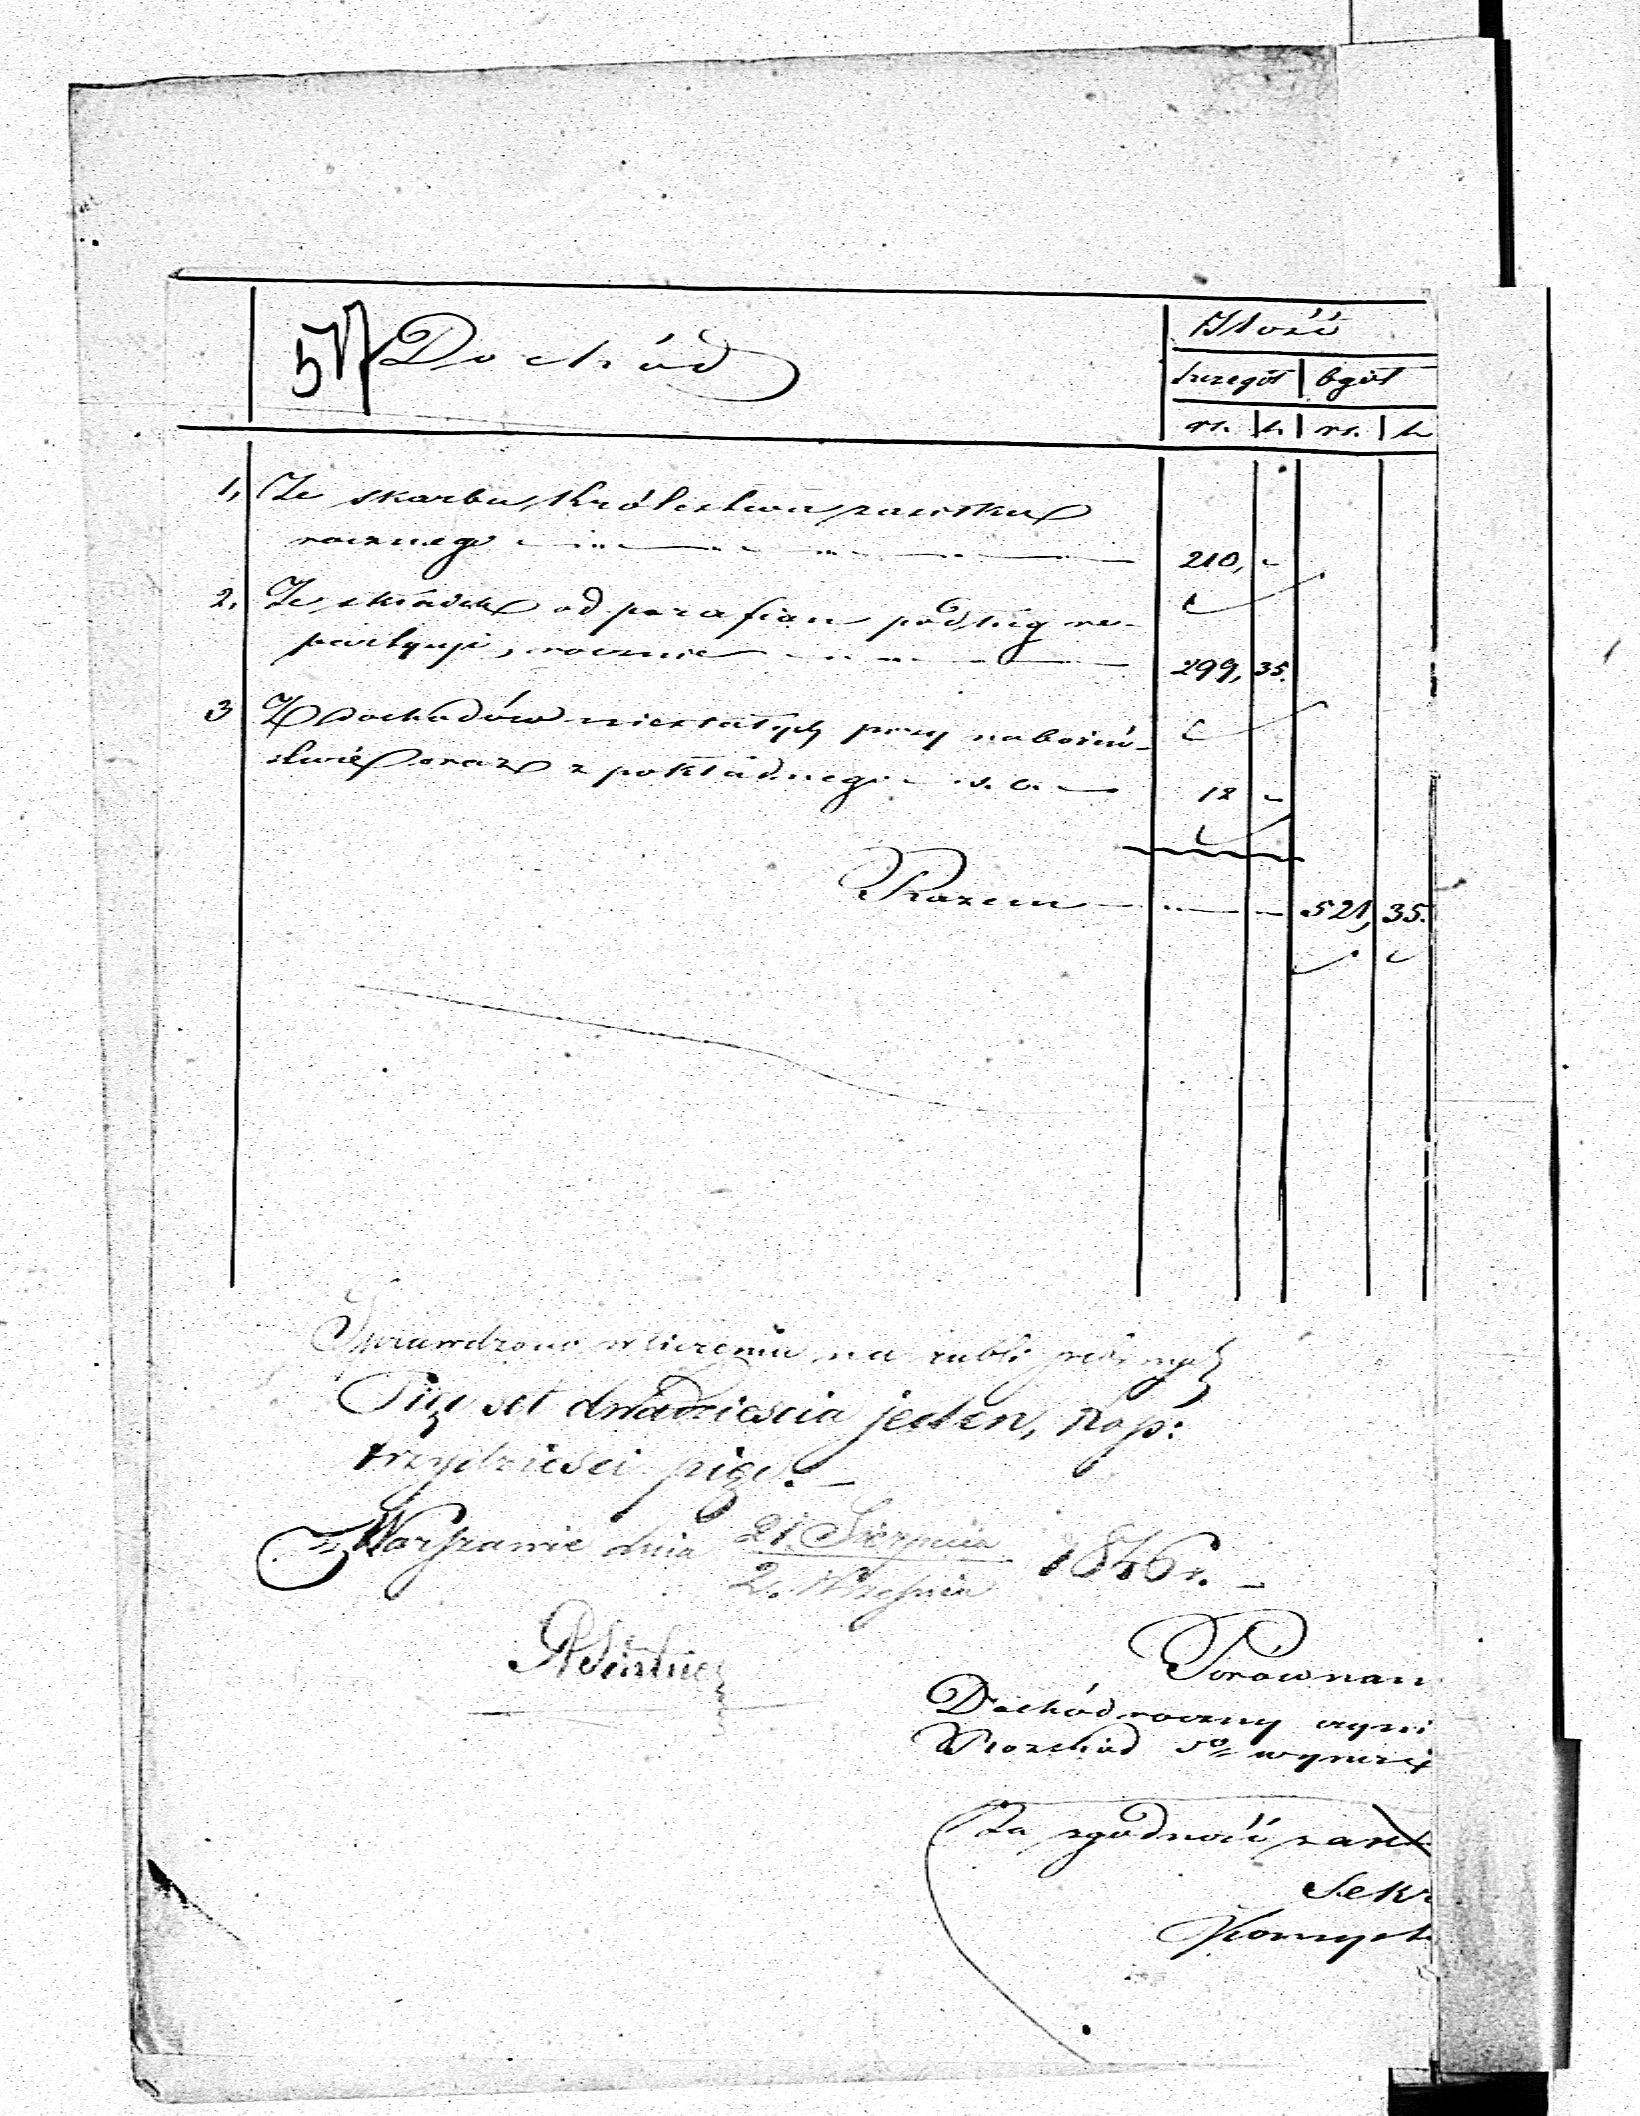 57 Dochód
Ilość
szczegół ogół
rs. k. rs. k.
1, Ze skarbu Królestwa zasiłku
rocznego 210, -
2, Ze składek od parafian podług re-
partycji, rocznie 299, 35.
3 Z dochodów niestałych przy nabożeń-
stwie oraz z pokładnego 12 -
Razem 521, 35.
Sprawdzono w liczeniu na rubli
Pięćset dwadzieścia jeden, kop:
trzydzieści pięć. -
w Warszawie dnia 21. Sierpnia 1846 r. -
2. Września
Porównan
Dochód roczny czyni
Rozchód wynosi
Za zgodność
Sekr